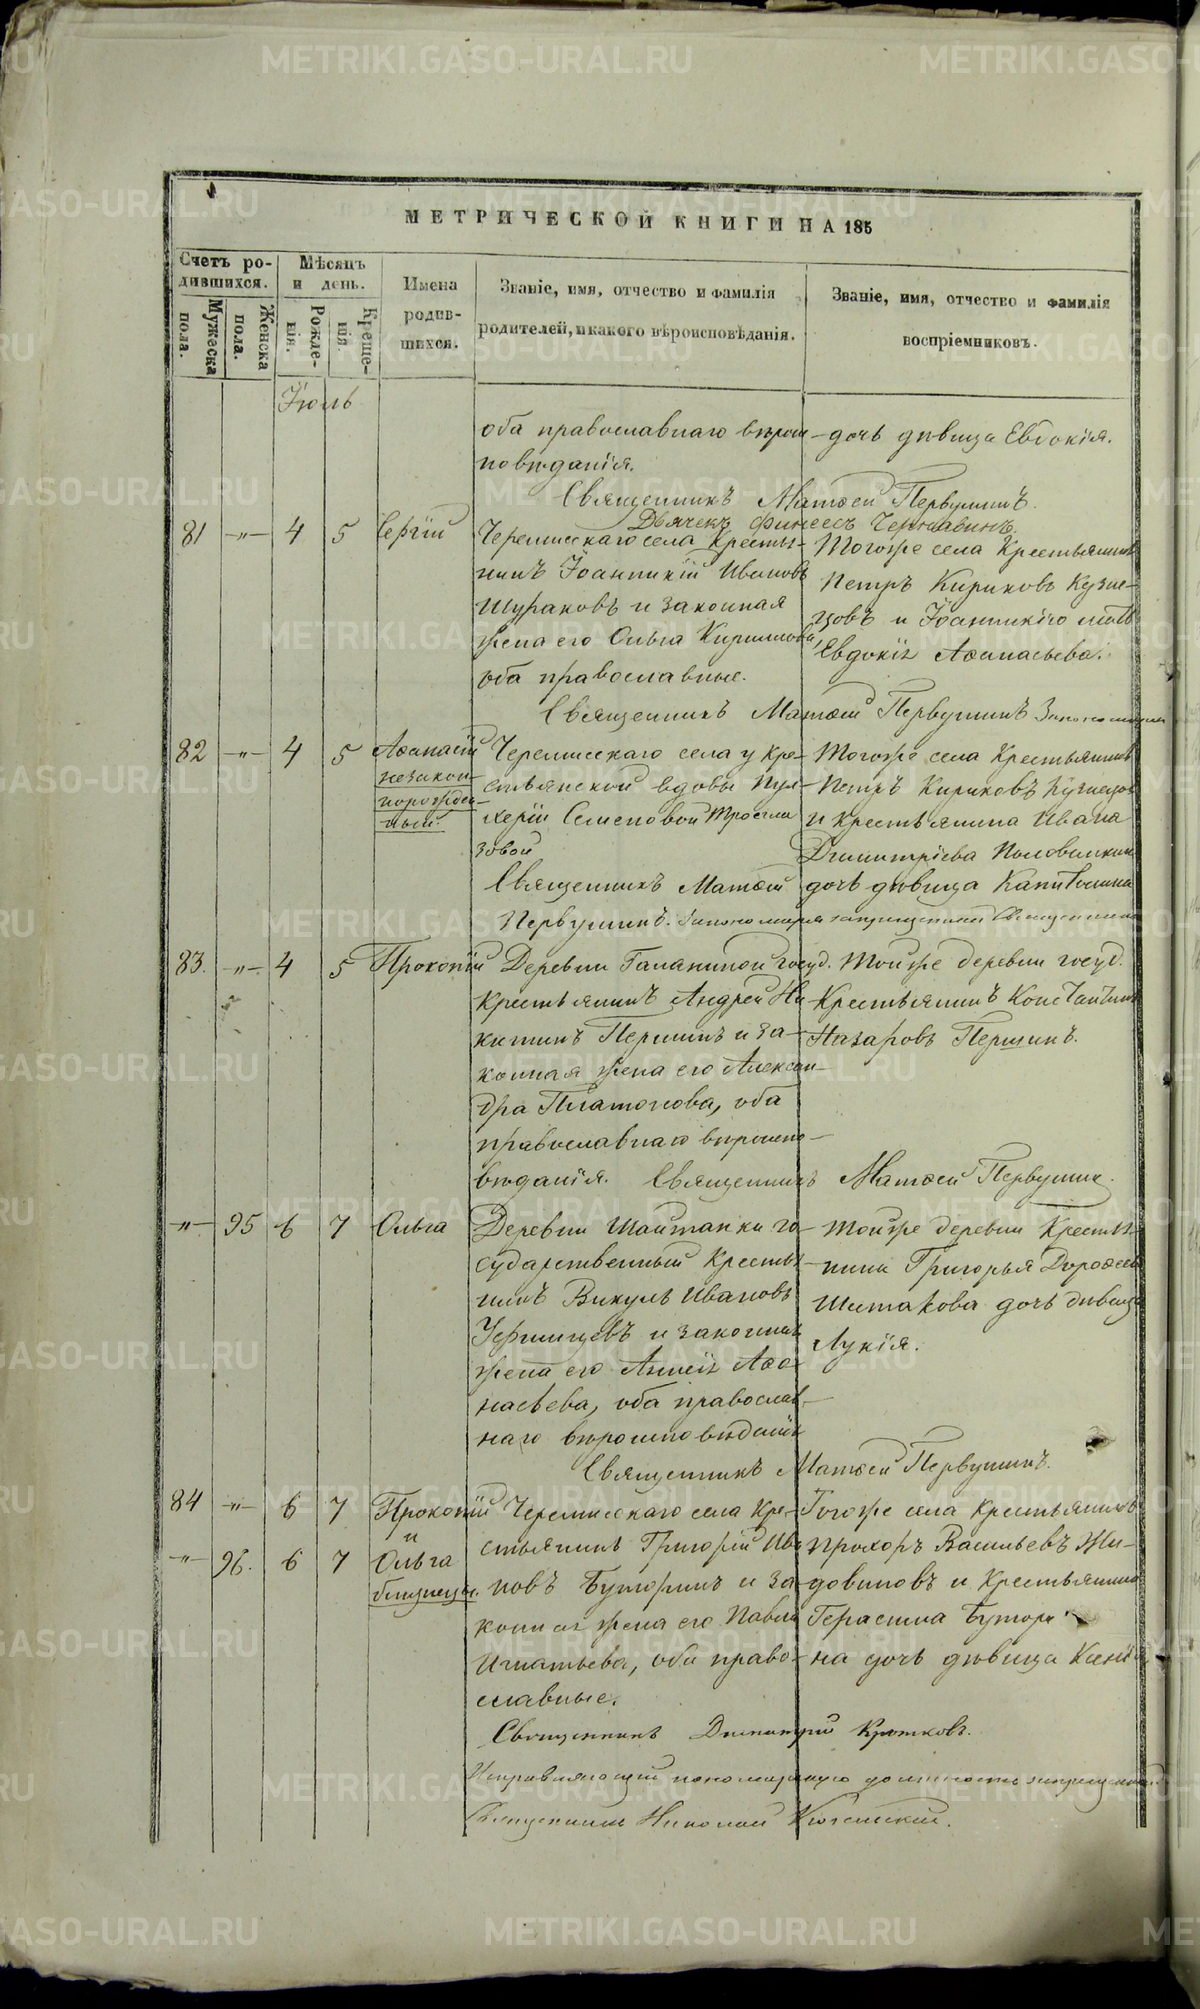 МЕТРИЧЕСКОЙ КНИГИ НА 185
Счетъ ро-
дившихся.
Мужеска
пола.
Женска
пола.
Мѣсяцъ
и день.
Рожде-
нія.
Креще-
нія.
Имена
родив-
шихся.
Званіе, имя, отчество и фамилія
родителей, и какого вѣроисповѣданія.
Званіе, имя, отчество и фамилія
воспріемниковъ.
Іюль
оба православнаго вѣроис-
повѣданія.
дочь дѣвица Евдокія.
Священникъ Матѳей Первушинъ.
Дьячекъ Финеесъ
81 -"- 4 5 Сергій
Черемисскаго села Кресть-
нинъ Іоанникій Ивановъ
Шураковъ и законная
жена его Ольга Кирикова,
оба православные.
Тогоже села Крестьянинъ
Петръ Кириковъ Кузне-
цовъ и Іоанникіо мать
Евдокія Аѳанасьева.
Священникъ Матѳей Первушинъ
82 -"- 4 5 Аѳанасій
незакон-
норожден-
ный.
Черемисскаго села у кре-
стьянской вдовы Пул-
херіи Семеновой
зовой
Тогоже села Крестьянинъ
Петръ Кириковъ Кузнецовъ
и крестьянина Ивана
Димитріева Половинкина
дочь дѣвица Капитолина
Священникъ Матѳей
Первушинъ.
83. -"- 4 5 Прокопій
Деревни Галаниной госуд.
крестьянинъ Андрей Ни-
китинъ Першинъ и за-
конная жена его Алексан-
дра Платонова, оба
православнаго вѣроиспо-
вѣданія.
Тойже деревни госуд.
Крестьянинъ Константинъ
Назаровъ Першинъ.
Священникъ Матѳей Первушин.
-"- 95 6 7 Ольга
Деревни Шайтанки го-
сударственный Крестья-
нинъ Викулъ Ивановъ
Уфимцевъ и законная
жена его Аѳо-
насьева, оба православ-
наго вѣроисповѣданія
Тойже деревни Крестья-
нина Григорья Дороѳеева
Шитакова дочь дѣвица
Лукія.
Священникъ Матѳей Первушинъ.
84 -"- 6 7 Прокопій
и
-"- 96. 6 7 Ольга
близнецы.
Черемисскаго села Кре-
стьянинъ Григорій Ива-
новъ Буторинъ и за-
конная жена его Павла
Игнатьева, оба право-
славные.
Тогоже села крестьянинъ
Прохоръ Васильевъ Жи-
довиновъ и Крестьянина
Герасима Бутори-
на дочь дѣвица Ксенія
Священникъ Димитрій Кротковъ.
Исправляющій пономарскую должность запрещенный
Священникъ Николай
METRIKI.GASO-URAL.RU